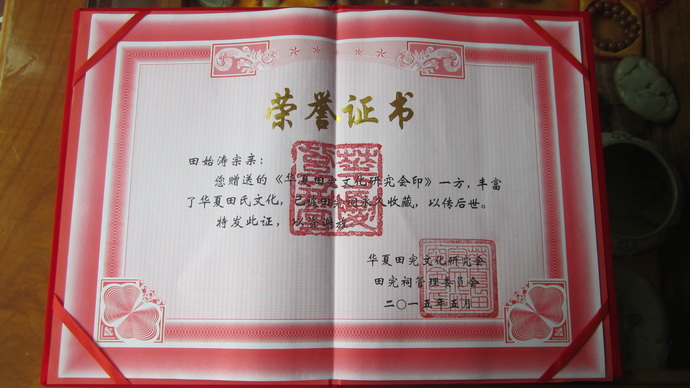 荣誉证书
田始涛宗亲：
您赠送的《华夏田完文化研究会印》一方，丰富
了华夏田氏文化，已被田完祠永久收藏，以传后世。
特发此证，以
华夏田完文化研究会
田完祠管理委员会
二〇一五年五月